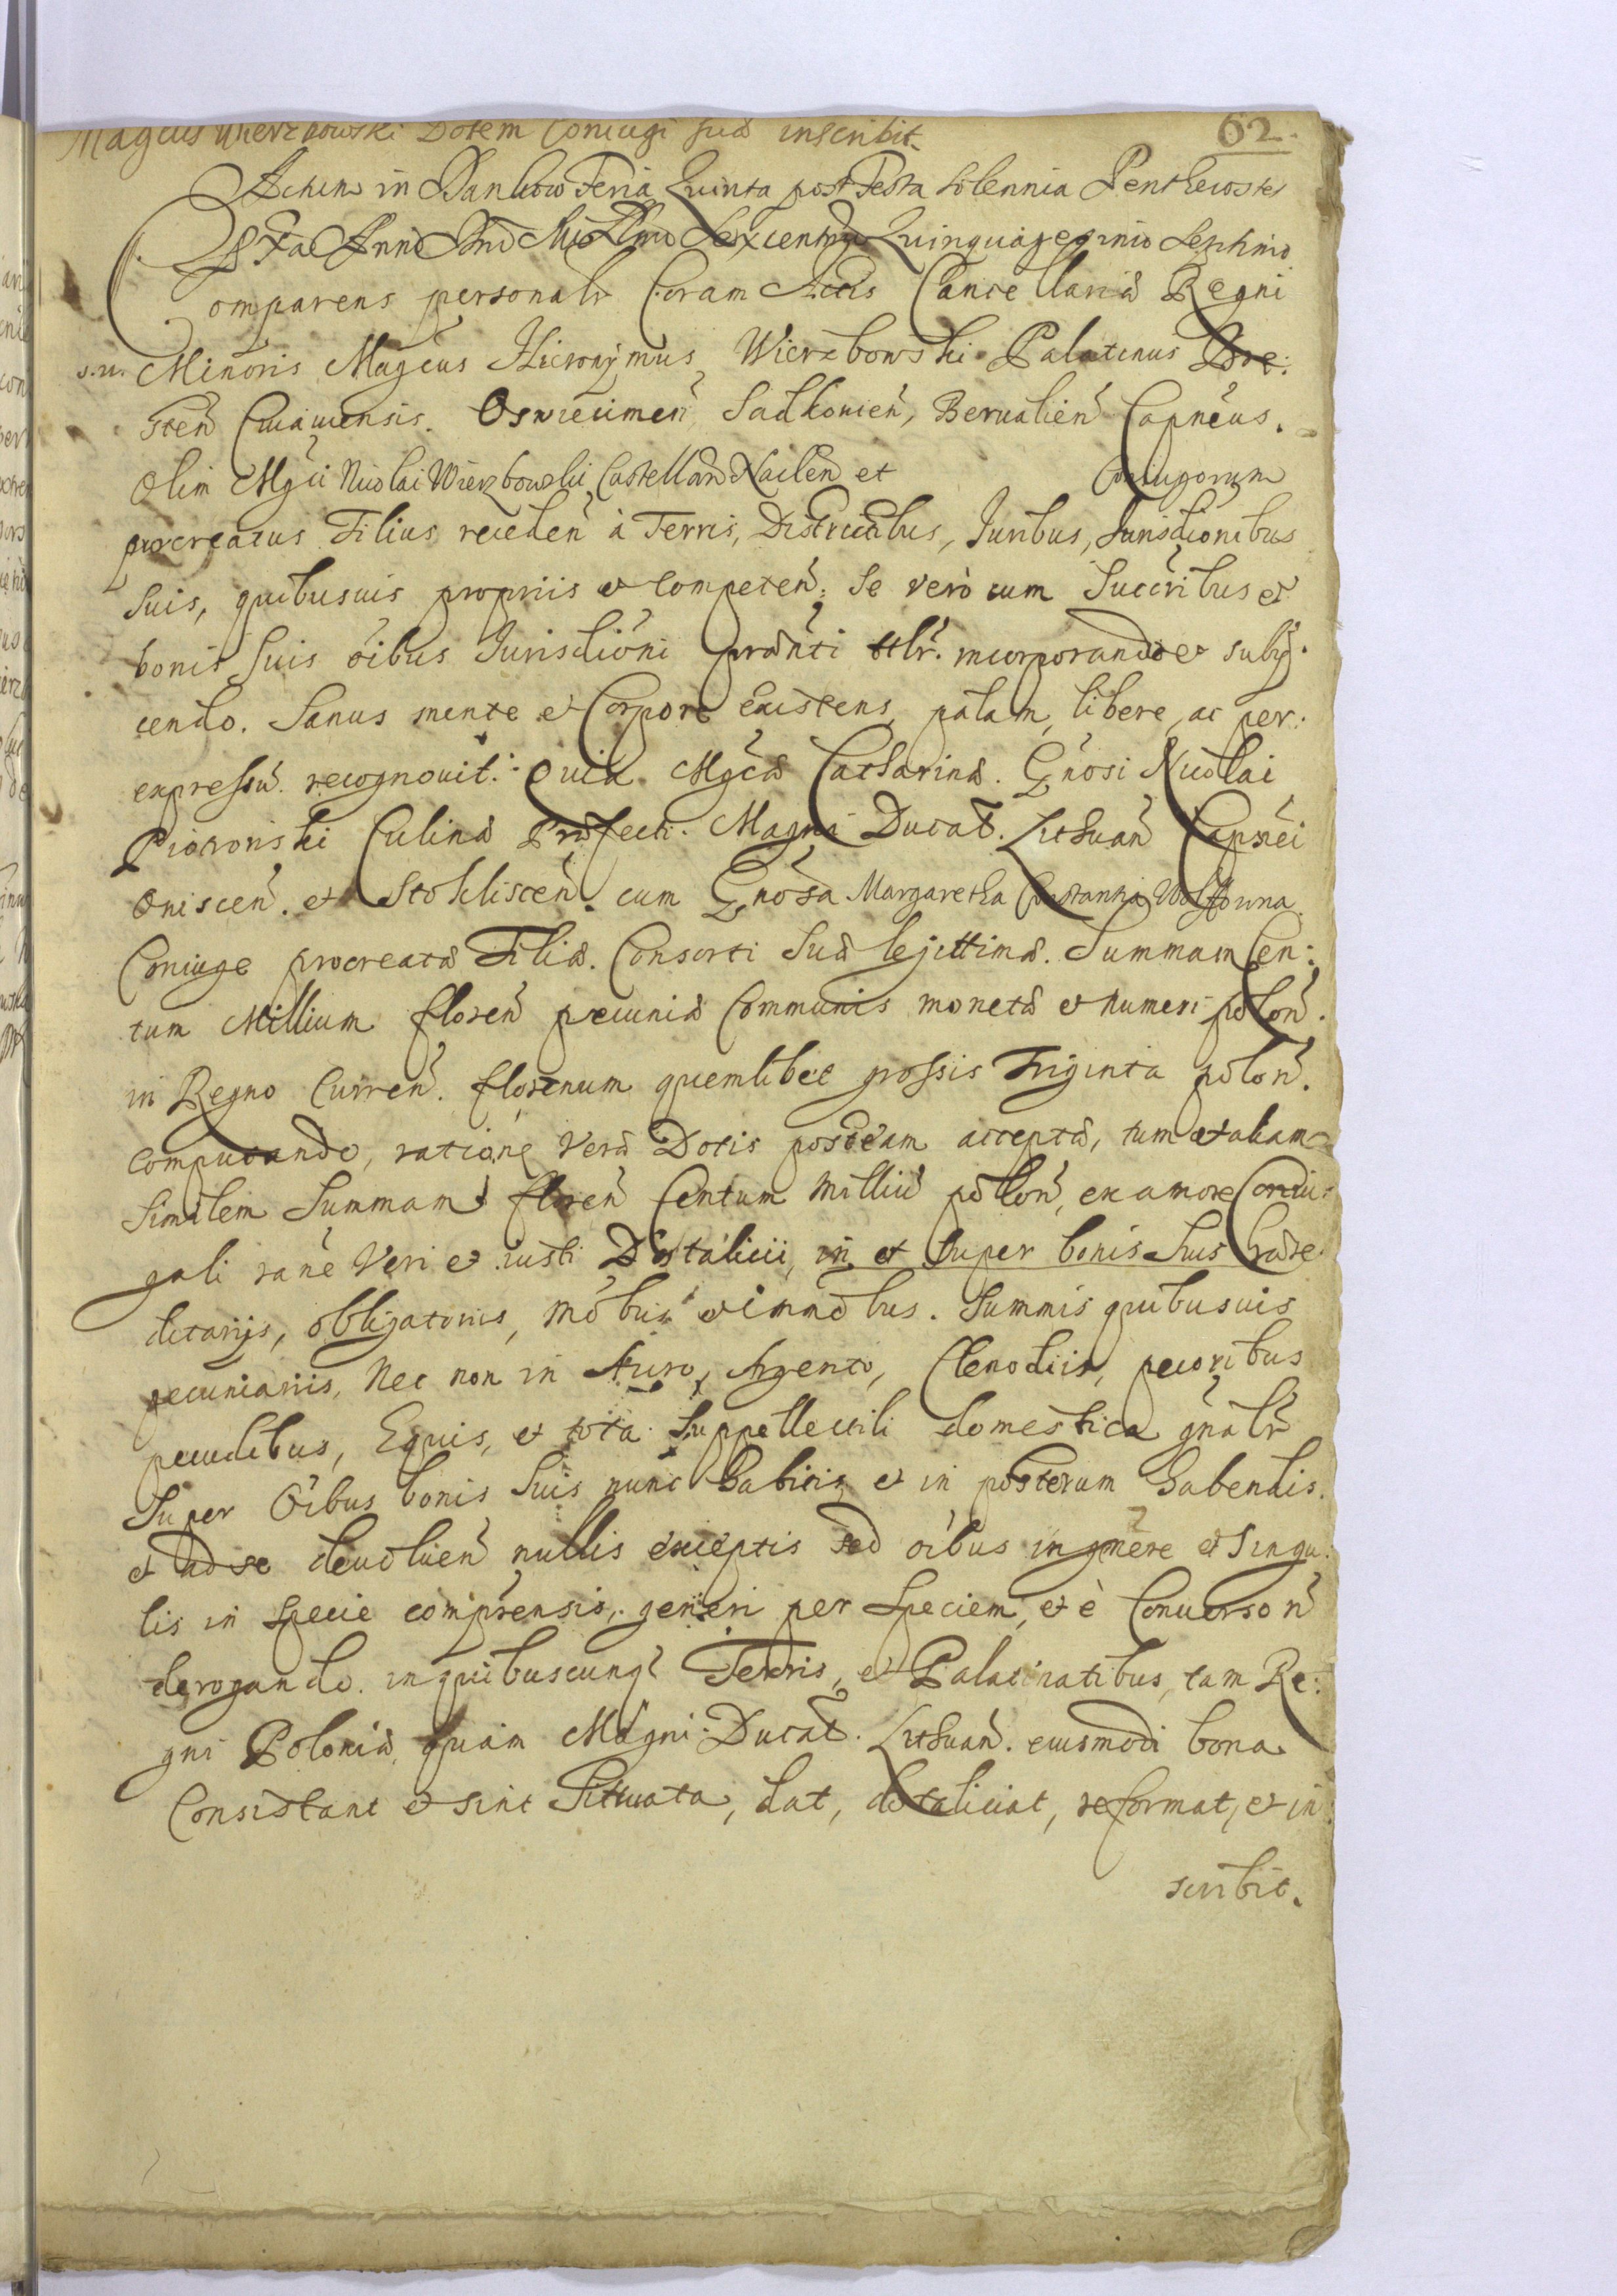 Magcus Wierzbowski Dotem Coniugi suæ inscribit.
62.
Actum in Dankow Feria Quinta post Festa Solennia Penthecostes
Anno Dni Millmo Sexcentmo Quinquagesimo Septimo
Comparens personalr Coram Actis Cancellariæ Regni
Minoris Magcus Hieronymus Wierzbowski Palatinus Bre:
sten Cuiauiensis. Oswiecimen, Sadkouien, Berualien Capneus.
Olim Mgci Nicolai Wierzbowski Castellan Naclen et Coniugorum
procreatus Filius receden à Terris, Districtibus, Juribus, Jurisdionibus
suis, quibusuis propriis et competen: Se verò cum Succribus et
bonis suis oibus Jurisdioni prænti incorporando et subij:
ciendo. Sanus mente et Corpore existens, palam, libere, ac per:
expressum recognouit: Quia Mgcæ Catharinæ. Gnosi Nicolai
Piotrowski Culinæ Præfecti. Magni Ducat. Lithuan Capnei
Oniscen. et Stokliscen. cum Gnosa Margaretha Constantia Wolffowna
Coniuge procreatæ Filiæ. Consorti Suæ legittimæ. Summam Cen:
tum Millium floren pecuniæ Communis monetæ et numeri polon.
in Regno Curren. florenum quemlibet grossis Triginta polon.
computando, ratione veræ Dotis post eam acceptæ, tum et aliam
Similem Summam floren Centum Milliu polon, ex amore Coniu:
gali rane veri et iusti Dotalicii, in et super bonis suis hære
ditarijs, obligatoriis, mobus et immobus. Summis quibusuis
pecuniariis, Nec non in Auro, Argento, Clenodiis, pecoribus
pecudibus, Equis, et tota suppellectili domestica gnalr
Super Oibus bonis suis nunc habitis et in posterum habendis.
et ad se deuoluen nullis exceptis sed oibus in genere et Singu
lis in specie comprensis, generi per Speciem, et è Conuerso n
derogando. in quibuscunq Terris, et Palatinatibus, tam Re:
gni Poloniæ, quàm Magni Ducat. Lithuan. eiusmodi bona
Consistant et sint Sittuata, dat, dotaliciat, reformat, et in
scribit.